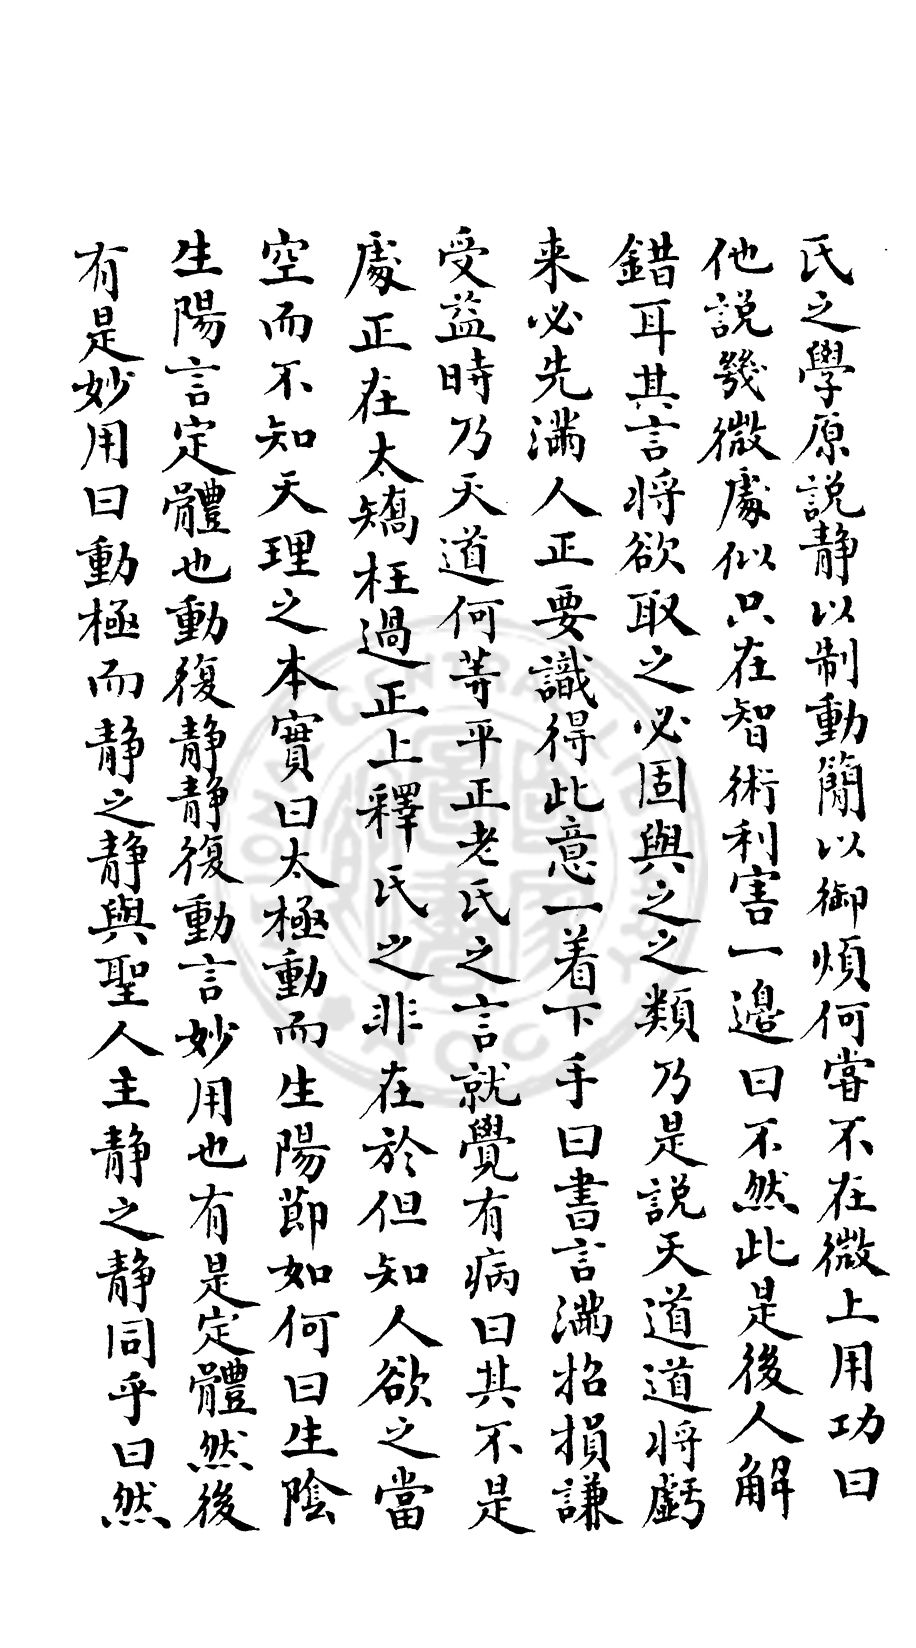 氏之學原説静以制動簡以御煩何嘗不在微上用功曰
他説幾微處似只在智術利害一邉曰不然此是後人解
錯耳其言将欲取之必固與之之類乃是説天道道将虧
来必先滿人正要識得此意一着下手曰書言滿招損謙
受益時乃天道何等平正老氏之言就覺有病曰其不是
處正在太矯枉過正上釋氏之非在於但知人欲之當
空而不知天理之本實曰太極動而生陽節如何曰生陰
生陽言定體也動復静静復動言妙用也有是定體然後
有是妙用曰動極而静之静與聖人主静之静同乎曰然